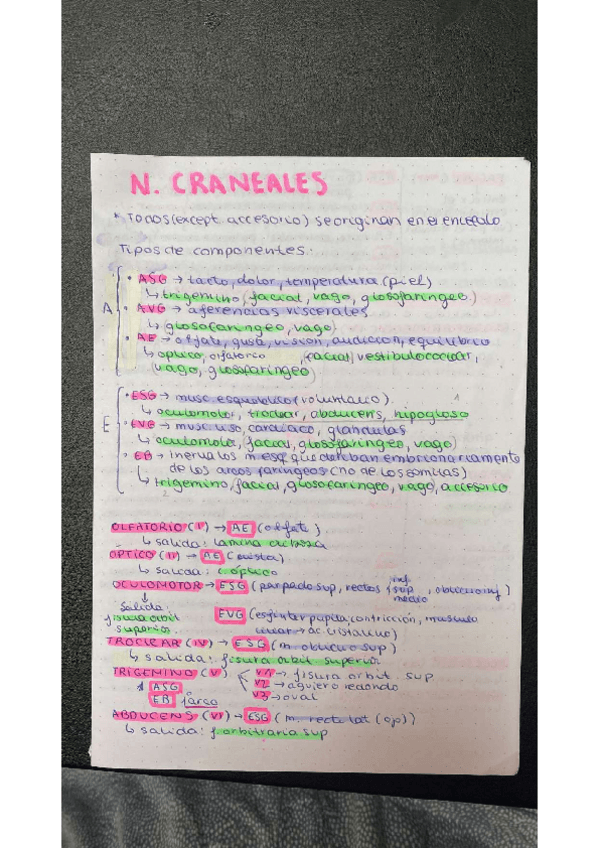 N. CRANEALES
* Todos (except. accesorio) se originan en el encéfalo
Tipos de componentes:
A
• ASG → tacto, dolor, temperatura (piel)
↳ trigemino, facial, vago, glosofaringeo)
• AVG → aferencias viscerales
↳ glosofaringeo, vago)
• AE → olfato, gusto, visión, audición, equilibrio
↳ optico, olfatorio, facial, vestibulococlear,
(vago, glosofaringeo)
E
• ESG → musc. esqueletico (voluntario).
↳ oculomotor, troclear, abducens, hipogloso
• EVG → musc. liso, cardiaco, glandulas
↳ oculomotor, facial, glosofaringeo, vago)
• EB → inerva los m esq que derivan embrionariamente
de los arcos faringeos (no de los somitas)
↳ trigemino, facial, glosofaringeo, vago, accesorio
OLFATORIO (I) → AE (olfato).
↳ salida: lamina cribosa
OPTICO (II) → AE (vista)
↳ salida: c. óptico
OCULOMOTOR → ESG (parpado sup, rectos inf, sup, medio, oblicuo inf)
↓
Salida:
fisura orbit
superior.
EVG (esfinter pupila, contricción, musculo
ciliar → ac. cristalino)
TROCLEAR (IV) → ESG (m. oblicuo sup)
↳ salida: fisura orbit superior
TRIGEMINO (V)
V1 → fisura orbit. sup
V2 → agujero redondo
V3 → oval
ASG
EB 1º arco
ABDUCENS (VI) → ESG (m. recto lat (ojo))
↳ salida: f. orbitraria sup